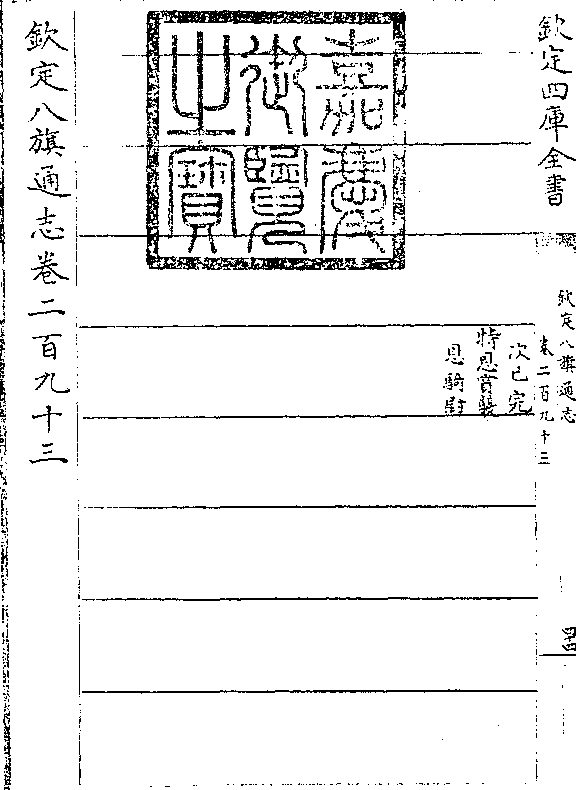 欽定四庫全書
欽定八旗通志
卷二百九十三
四十四
嘉慶
御覽
之寶
次已完
特恩賞襲
恩騎尉
欽定八旗通志卷二百九十三